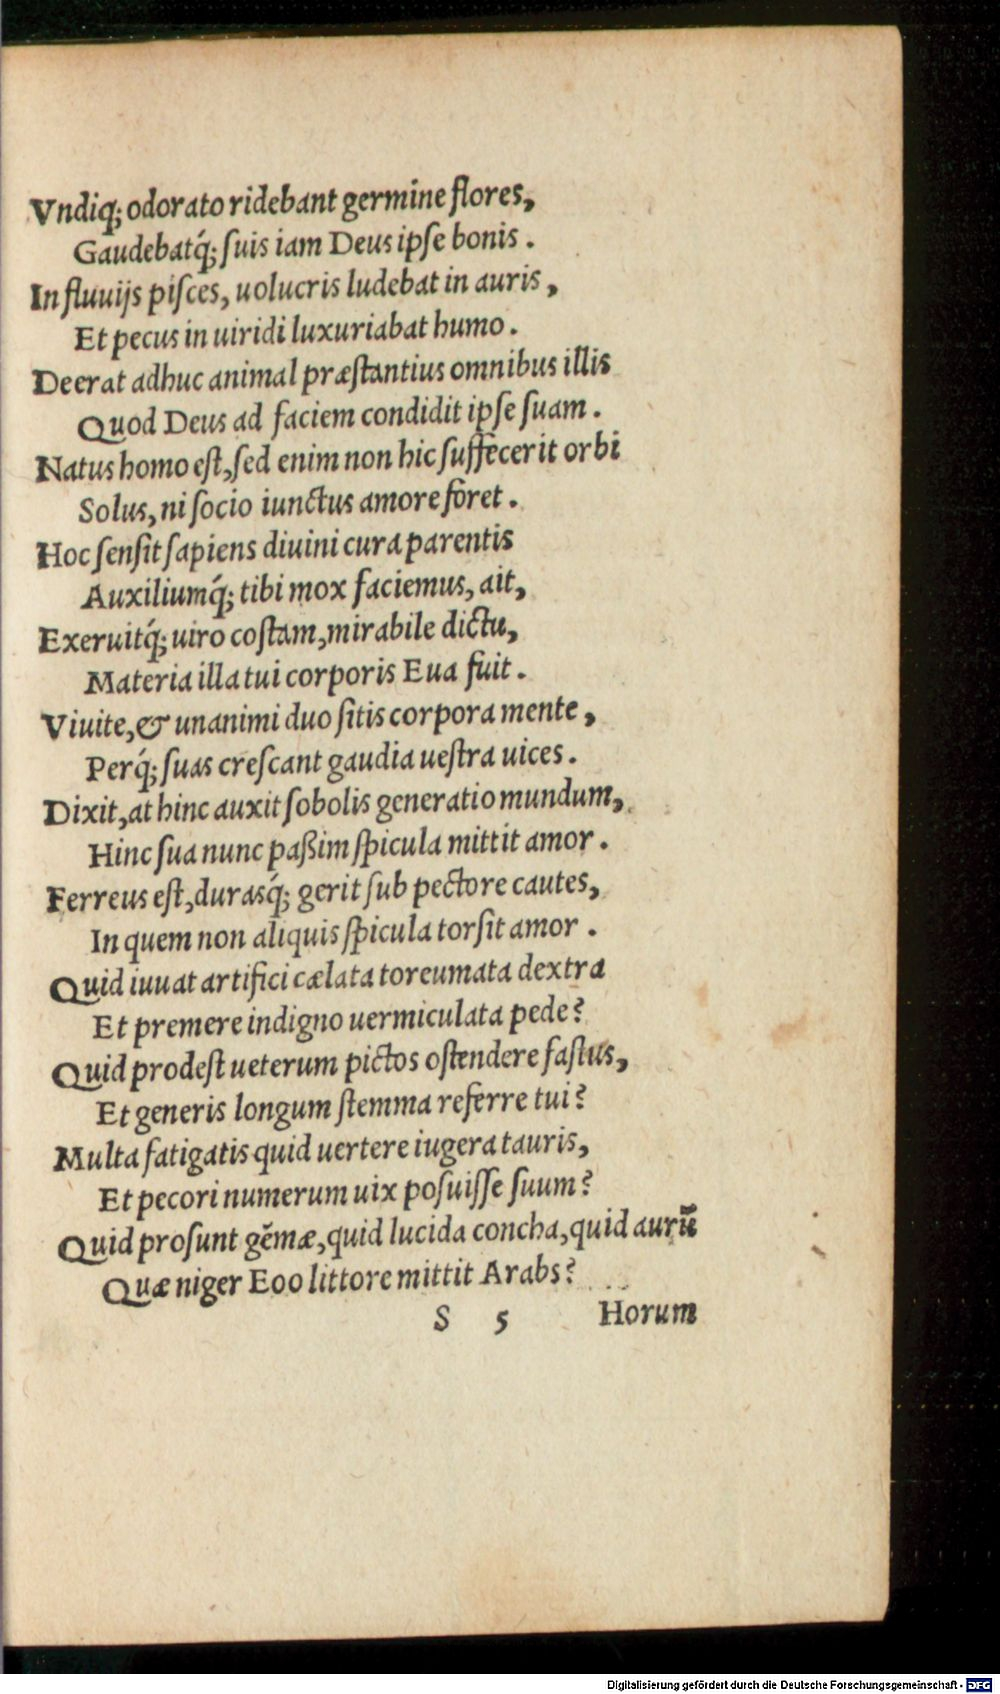 Vndiq; odorato ridebant germine flores,
Gaudebatq́; suis iam Deus ipse bonis.
In fluuijs pisces, uolucris ludebat in auris,
Et pecus in uiridi luxuriabat humo.
Deerat adhuc animal præstantius omnibus illis
Quod Deus ad faciem condidit ipse suam.
Natus homo est, sed enim non hic suffecerit orbi
Solus, ni socio iunctus amore foret.
Hoc sensit sapiens diuini cura parentis
Auxiliumq́; tibi mox faciemus, ait,
Exeruitq́; uiro costam, mirabile dictu,
Materia illa tui corporis Eua fuit.
Viuite, & unanimi duo sitis corpora mente,
Perq́; suas crescant gaudia uestra uices.
Dixit, at hinc auxit sobolis generatio mundum,
Hinc sua nunc paßim spicula mittit amor.
Ferreus est, durasq́; gerit sub pectore cautes,
In quem non aliquis spicula torsit amor.
Quid iuuat artifici cælata toreumata dextra
Et premere indigno uermiculata pede?
Quid prodest ueterum pictos ostendere fastus,
Et generis longum stemma referre tui?
Multa fatigatis quid uertere iugera tauris,
Et pecori numerum uix posuisse suum?
Quid prosunt gēmæ, quid lucida concha, quid aurū
Quæ niger Eoo littore mittit Arabs?
S 5 Horum
Digitalisierung gefördert durch die Deutsche Forschungsgemeinschaft - DFG